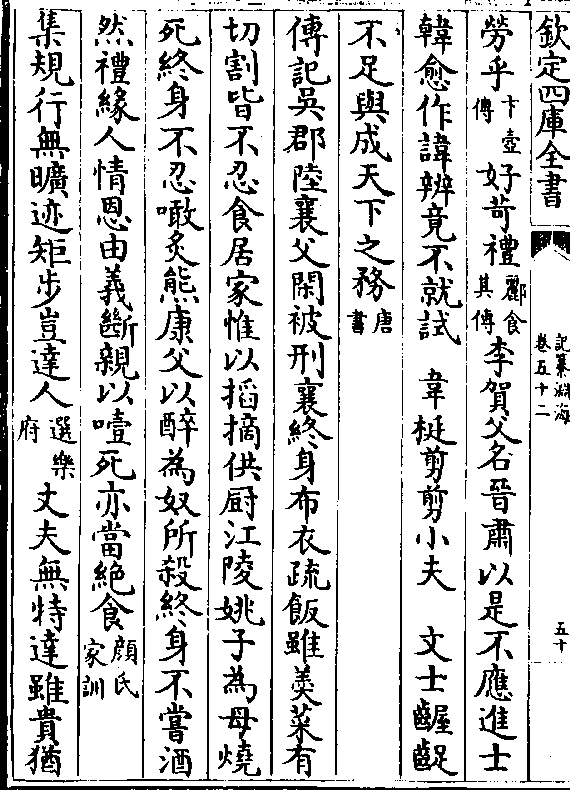 欽定四庫全書
記纂淵海
卷五十二
五十
勞乎卞壺傳 好苛禮酈食其傳 李賀父名晉肅以是不應進士
韓愈作諱辨竟不就試 韋梃剪剪小夫 文士齷齪
不足與成天下之務唐書
傳記吳郡陸襄父閑被刑襄終身布衣疏飯雖羮菜有
切割皆不忍食居家惟以搯摘供厨江陵姚子為母燒
死終身不忍噉炙熊康父以醉為奴所殺終身不嘗酒
然禮緣人情恩由義斷親以噎死亦當絶食顔氏家訓
集規行無曠迹矩步豈達人選樂府 丈夫無特達雖貴猶